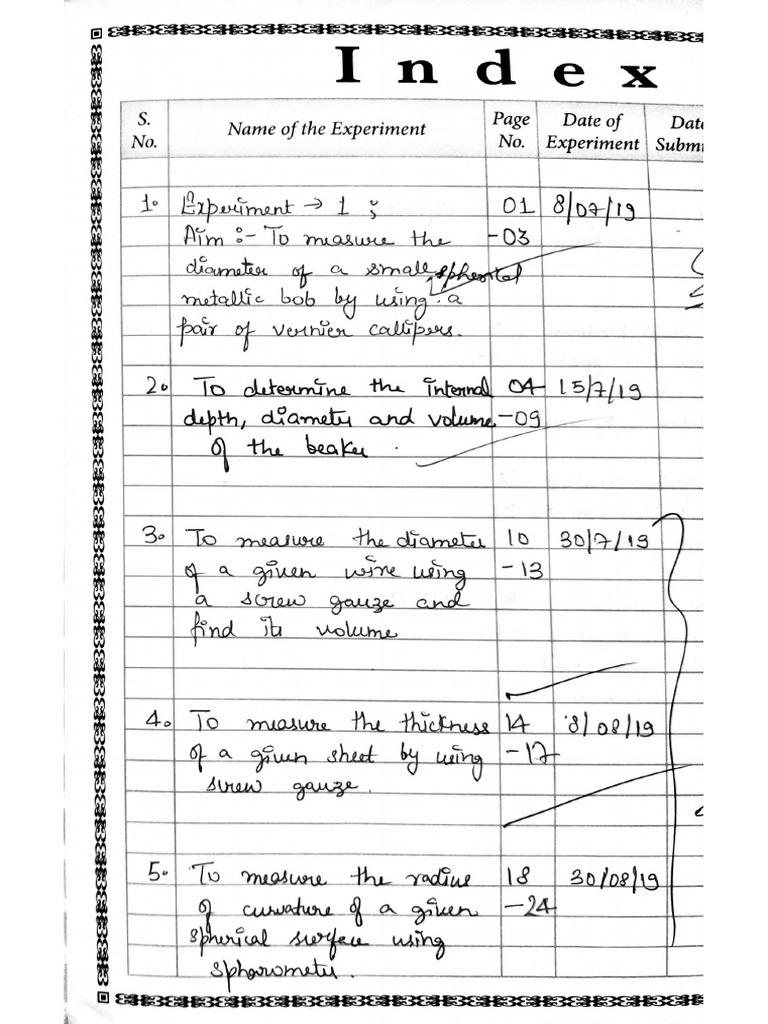 Index
S. No. Name of the Experiment Page No. Date of Experiment Date Subm
1. Experiment → 1 ; 01 8/07/19
Aim :- To measure the -03
diameter of a small spherical
metallic bob by using a
pair of vernier callipers.
2. To determine the internal 04 15/7/19
depth, diameter and volume -09
of the beaker .
3. To measure the diameter 10 30/7/19
of a given wire using -13
a screw gauze and
find its volume
4. To measure the thickness 14 8/08/19
of a given sheet by using -17
screw gauze .
5. To measure the radius 18 30/08/19
of curvature of a given -24
spherical surface using
spharometer .